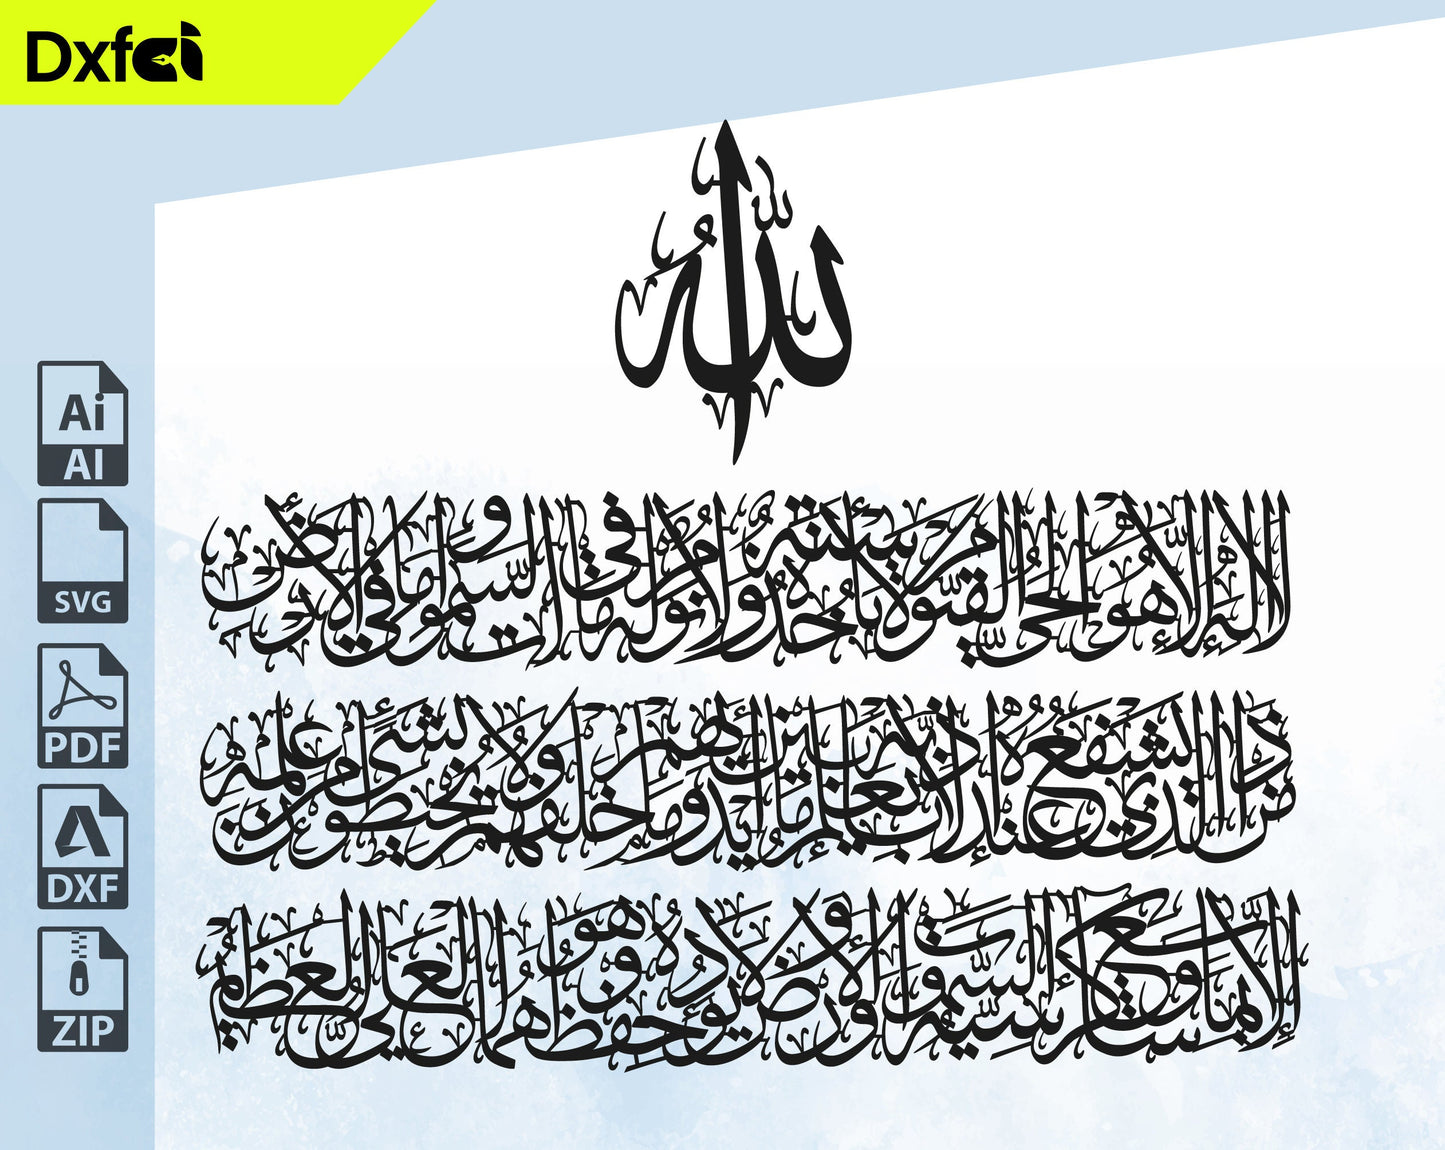 Dxfai
الله
الله لا إله إلا هو الحي القيوم لا تأخذه سنة ولا نوم له ما في السموات وما في الأرض
من ذا الذي يشفع عنده إلا بإذنه يعلم ما بين أيديهم وما خلفهم ولا يحيطون بشيء من علمه
إلا بما شاء وسع كرسيه السموات والأرض ولا يؤده حفظهما وهو العلي العظيم
Ai
AI
SVG
PDF
DXF
ZIP